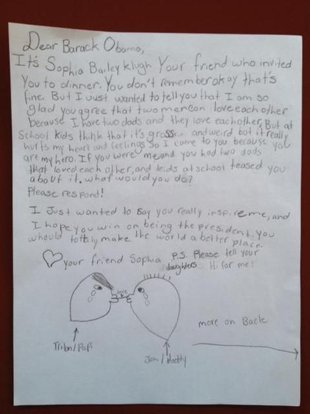 Dear Barack Obama,
It's Sophia Bailey Klugh Your friend who invited
You to dinner. You don't remember okay that's
fine. But I Just wanted to tell you that I am so
glad you agree that two men can love each other
because I have two dads and they love each other. But at
School kids think that it's gross and weird but it really
hurts my heart and feelings. So I come to you because you
are my hero. If you were me and you had two dads
that loved each other, and kids at school teased you
about it, what would you do?
Please respond!
I Just wanted to say you really inspire me, and
I hope you win on being the president. you
would totally make the world a better place.
your friend Sophia
P.S. Please tell your
daughters Hi for me!
love
Triton/Papi
Jon/Daddy
more on Back